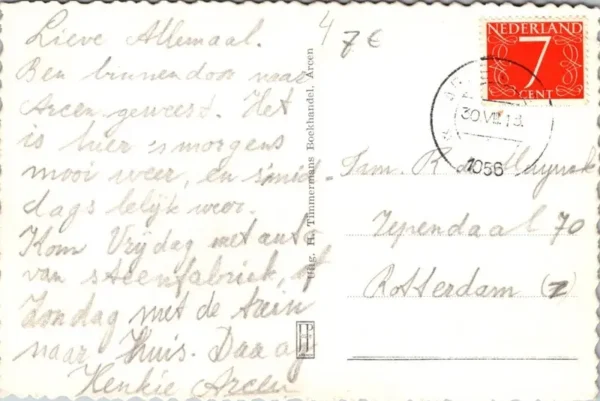 Lieve Allemaal.
Ben binnendoor naar
Arcen geweest. Het
is hier 's morgens
mooi weer, en s'mid-
dags lelijk weer.
Kom Vrijdag met auto
van steenfabriek, of
Zondag met de trein
naar Huis. Daaag
Henkie Arcen
4 7€
Uitg. H. Timmermans Boekhandel, Arcen
NEDERLAND
7
CENT
30.VII.18
1956
Fam. R.
Iependaal 70
Rotterdam (Z